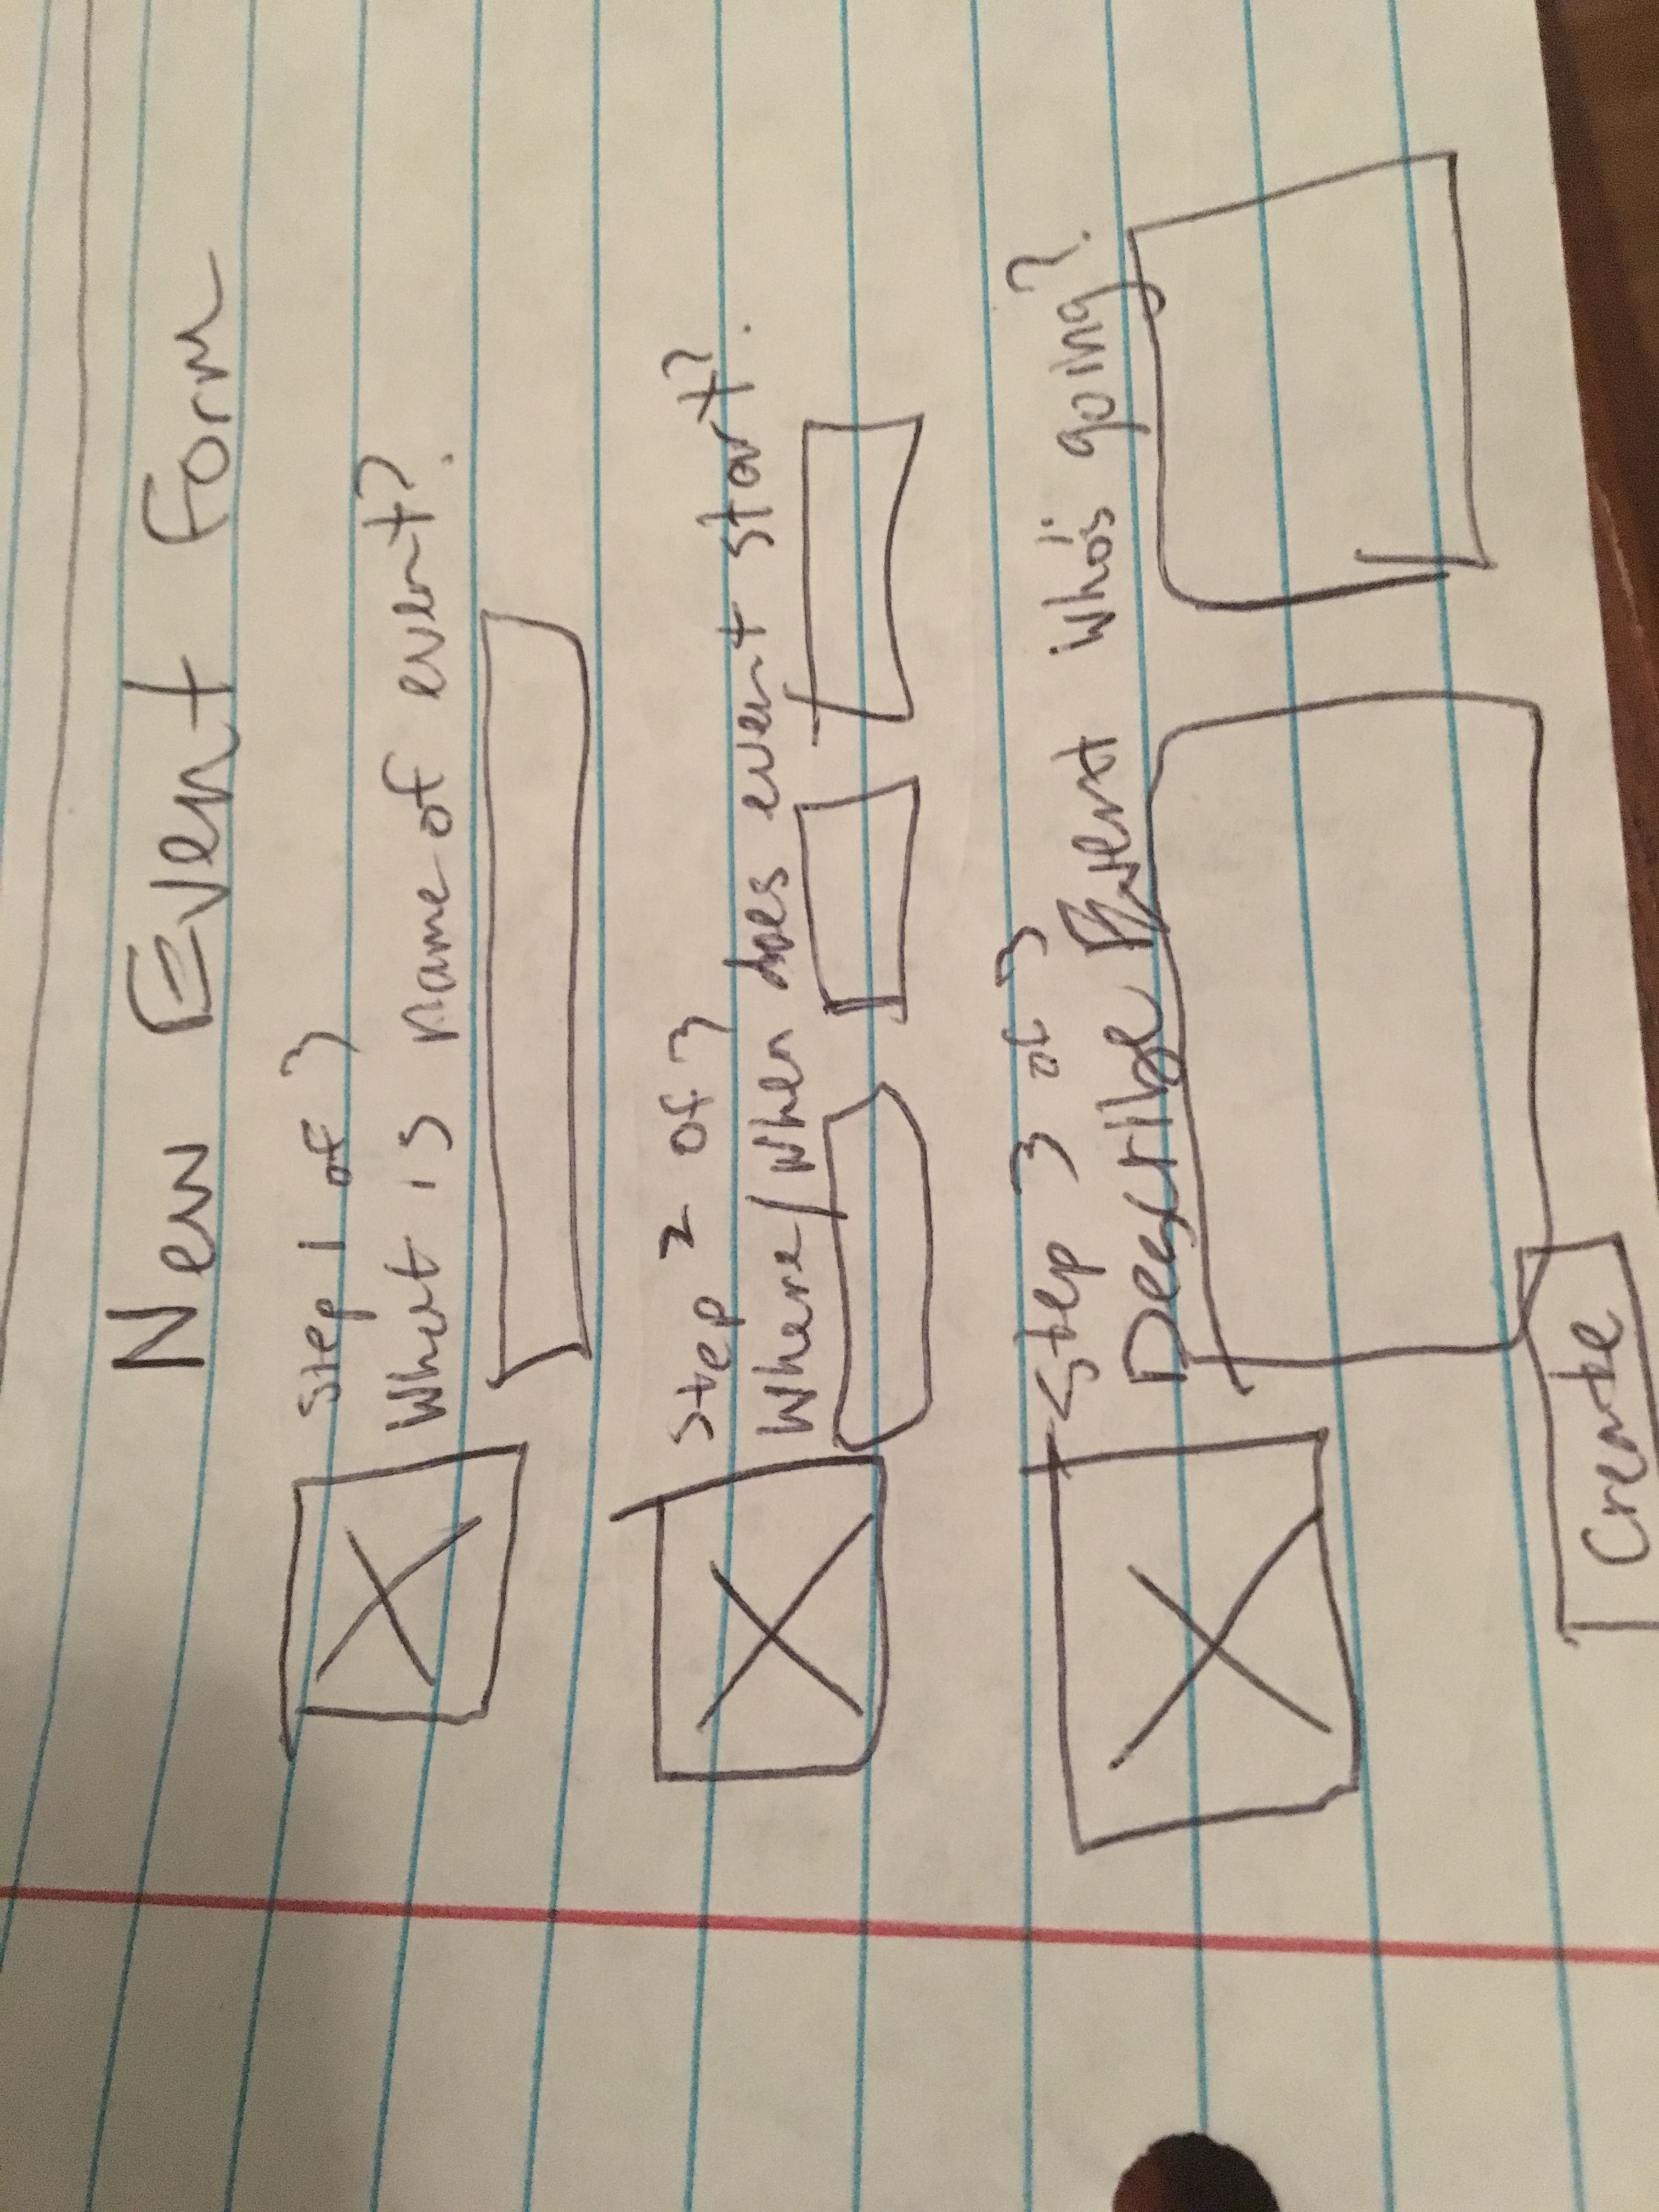 New Event Form
Step 1 of 3
What is name of event?
Step 2 of 3
Where/When does event start?
Step 3 of 3
Describe Event Who's going?
Create